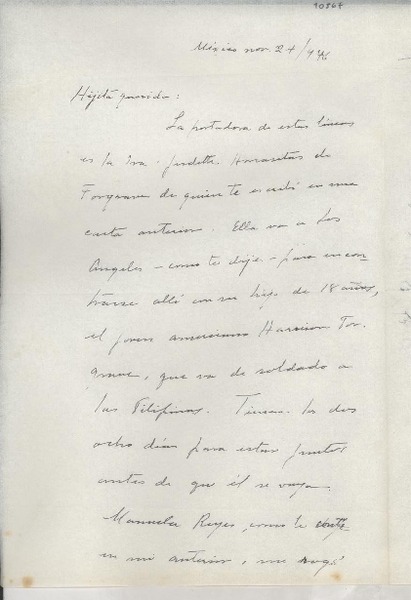 10564
México nov. 24/946
Hijita querida:
La portadora de estas líneas
es la Sra. Judith de
de quien te escribí en mi
carta anterior. Ella va a Los
Angeles - como te dije - para encon-
trarse allí con su hijo de 18 años,
el joven americano Harrison Tor-
grave, que va de soldado a
las Filipinas. Tienen los dos
ocho días para estar juntos
antes de que él se vaya.
Manuela Reyes, como te conté
en mi anterior, me rogó